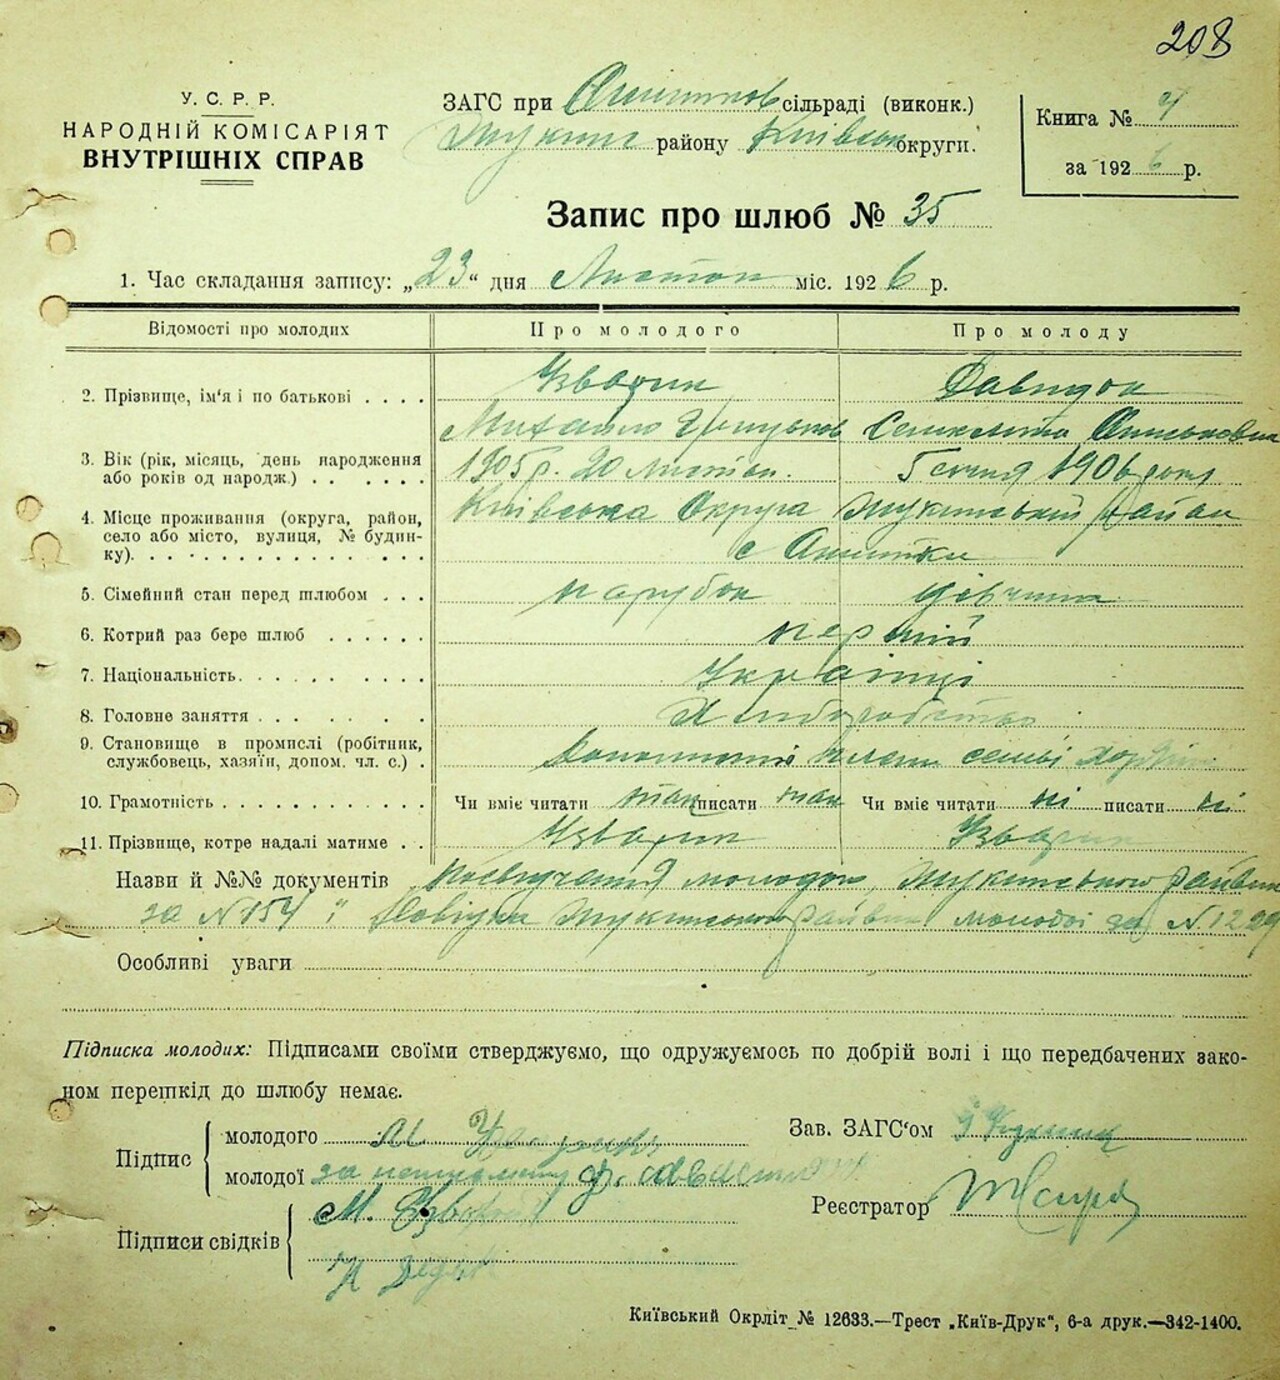 208
У. С. Р. Р.
НАРОДНІЙ КОМІСАРІЯТ
ВНУТРІШНІХ СПРАВ
ЗАГС при сільраді (виконк.)
району Київськ округи.
Книга № 4
за 1926 р.
Запис про шлюб № 35
1. Час складання запису: „23“ дня Листоп міс. 1926 р.
Відомості про молодих Про молодого Про молоду
2. Прізвище, ім'я і по батькові . . . . Узварик Давидок
Михайло
3. Вік (рік, місяць, день народження 1905 р. 20 Листоп. 5 січня 1906 року
або років од народж.) . . . . . .
4. Місце проживання (округа, район, Київська Округа Жукинський район
село або місто, вулиця, № будин- с
ку). . . . . . . . . . . . . . . . .
5. Сімейний стан перед шлюбом . . . парубок дівчина
6. Котрий раз бере шлюб . . . . . . перший
7. Національність. . . . . . . . . . Українці
8. Головне заняття . . . . . . . Хліборобство
9. Становище в промислі (робітник,
службовець, хазяїн, допом. чл. с.) . члени семьї
10. Грамотність . . . . . . . . . . . Чи вміє читати так писати так Чи вміє читати ні писати ні
11. Прізвище, котре надалі матиме . . Узварик Узварик
Назви й №№ документів Посвідчення молодого, Жукинського
за N 154 і молодої за N. 1229
Особливі уваги
Підписка молодих: Підписами своїми стверджуємо, що одружуємось по добрій волі і що передбачених зако-
ном перешкід до шлюбу немає.
Підпис
молодого М.
молодої за неписьменну
Зав. ЗАГС'ом
Реєстратор
Підписи свідків
М.
Київський Окрліт № 12633.—Трест „Київ-Друк“, 6-а друк.—342-1400.